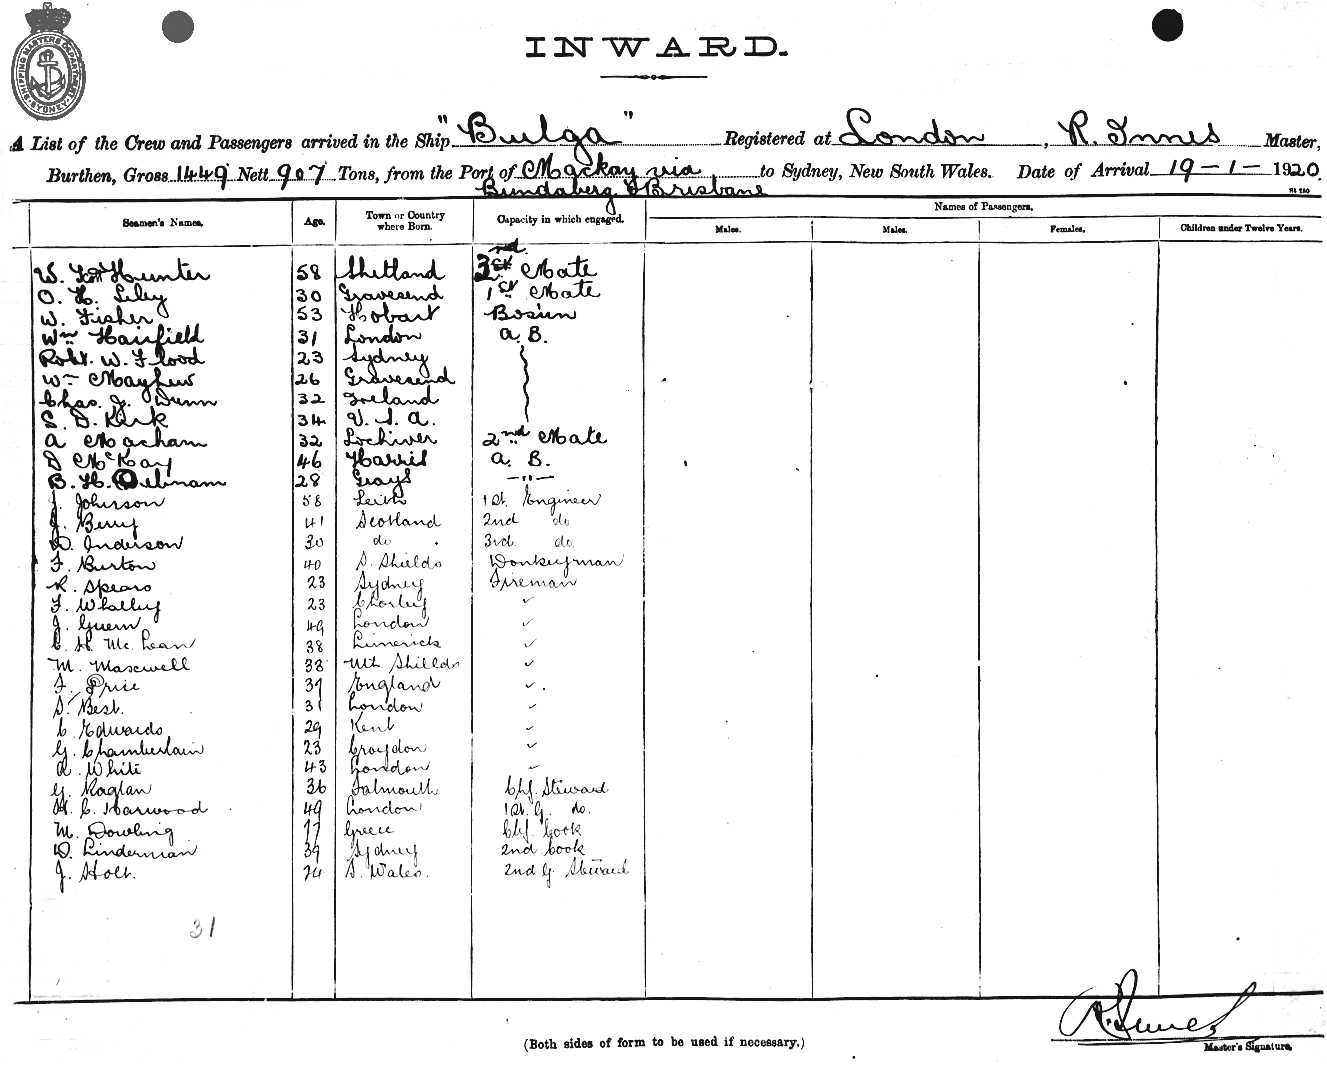 SHIPPING MASTERS DEPARTMENT SYDNEY
INWARD.
A List of the Crew and Passengers arrived in the Ship "Bulga" Registered at London, R. Innes Master,
Burthen, Gross 1449 Nett 907 Tons, from the Port of Mackay via to Sydney, New South Wales. Date of Arrival 19-1-1920.
Bundaberg & Brisbane
Seamen's Names. Age. Town or Country where Born. Capacity in which engaged. Names of Passengers.
Males. Males. Females. Children under Twelve Years.
W. Hunter 58 Shetland 3rd Mate
O. H. Liley 30 Gravesend 1st Mate
W. Fisher 53 Hobart Bosun
Wm Hairfield 31 London A. B.
Robt. W. Flood 23 Sydney
Wm Mayhew 26 Gravesend
Chas. J. Dunn 32 Ireland
S. D. Kirk 34 U. S. A.
A Macham 32 Lochiver 2nd Mate
D McKay 46 Harris A. B.
B. H. 28 Grays —"—
J. Johnson 58 Leith 1st. Engineer
J. Berry 41 Scotland 2nd do
D. Anderson 30 do 3rd. do.
F. Burton 40 S. Shields Donkeyman
R. Spears 23 Sydney Fireman
F. Whalley 23 Chorley ✓
J. Guern 49 London ✓
C. H. Mc. Lean 38 Limerick ✓
M. Maxwell 38 Nth Shields ✓
F. Price 39 England ✓
S. Best. 31 London ✓
C Edwards 29 Kent ✓
G. Chamberlain 23 Croydon ✓
A. White 43 London ✓
G. Raglan 36 Falmouth Chf. Steward
H. C. Harwood 49 London 1st. G. do.
M. Dowling Greece Chf. Cook
D. Linderman 39 Sydney 2nd Cook
J. Holt. 24 S. Wales. 2nd G. Steward
31
R. Innes
(Both sides of form to be used if necessary.)
Master's Signature.